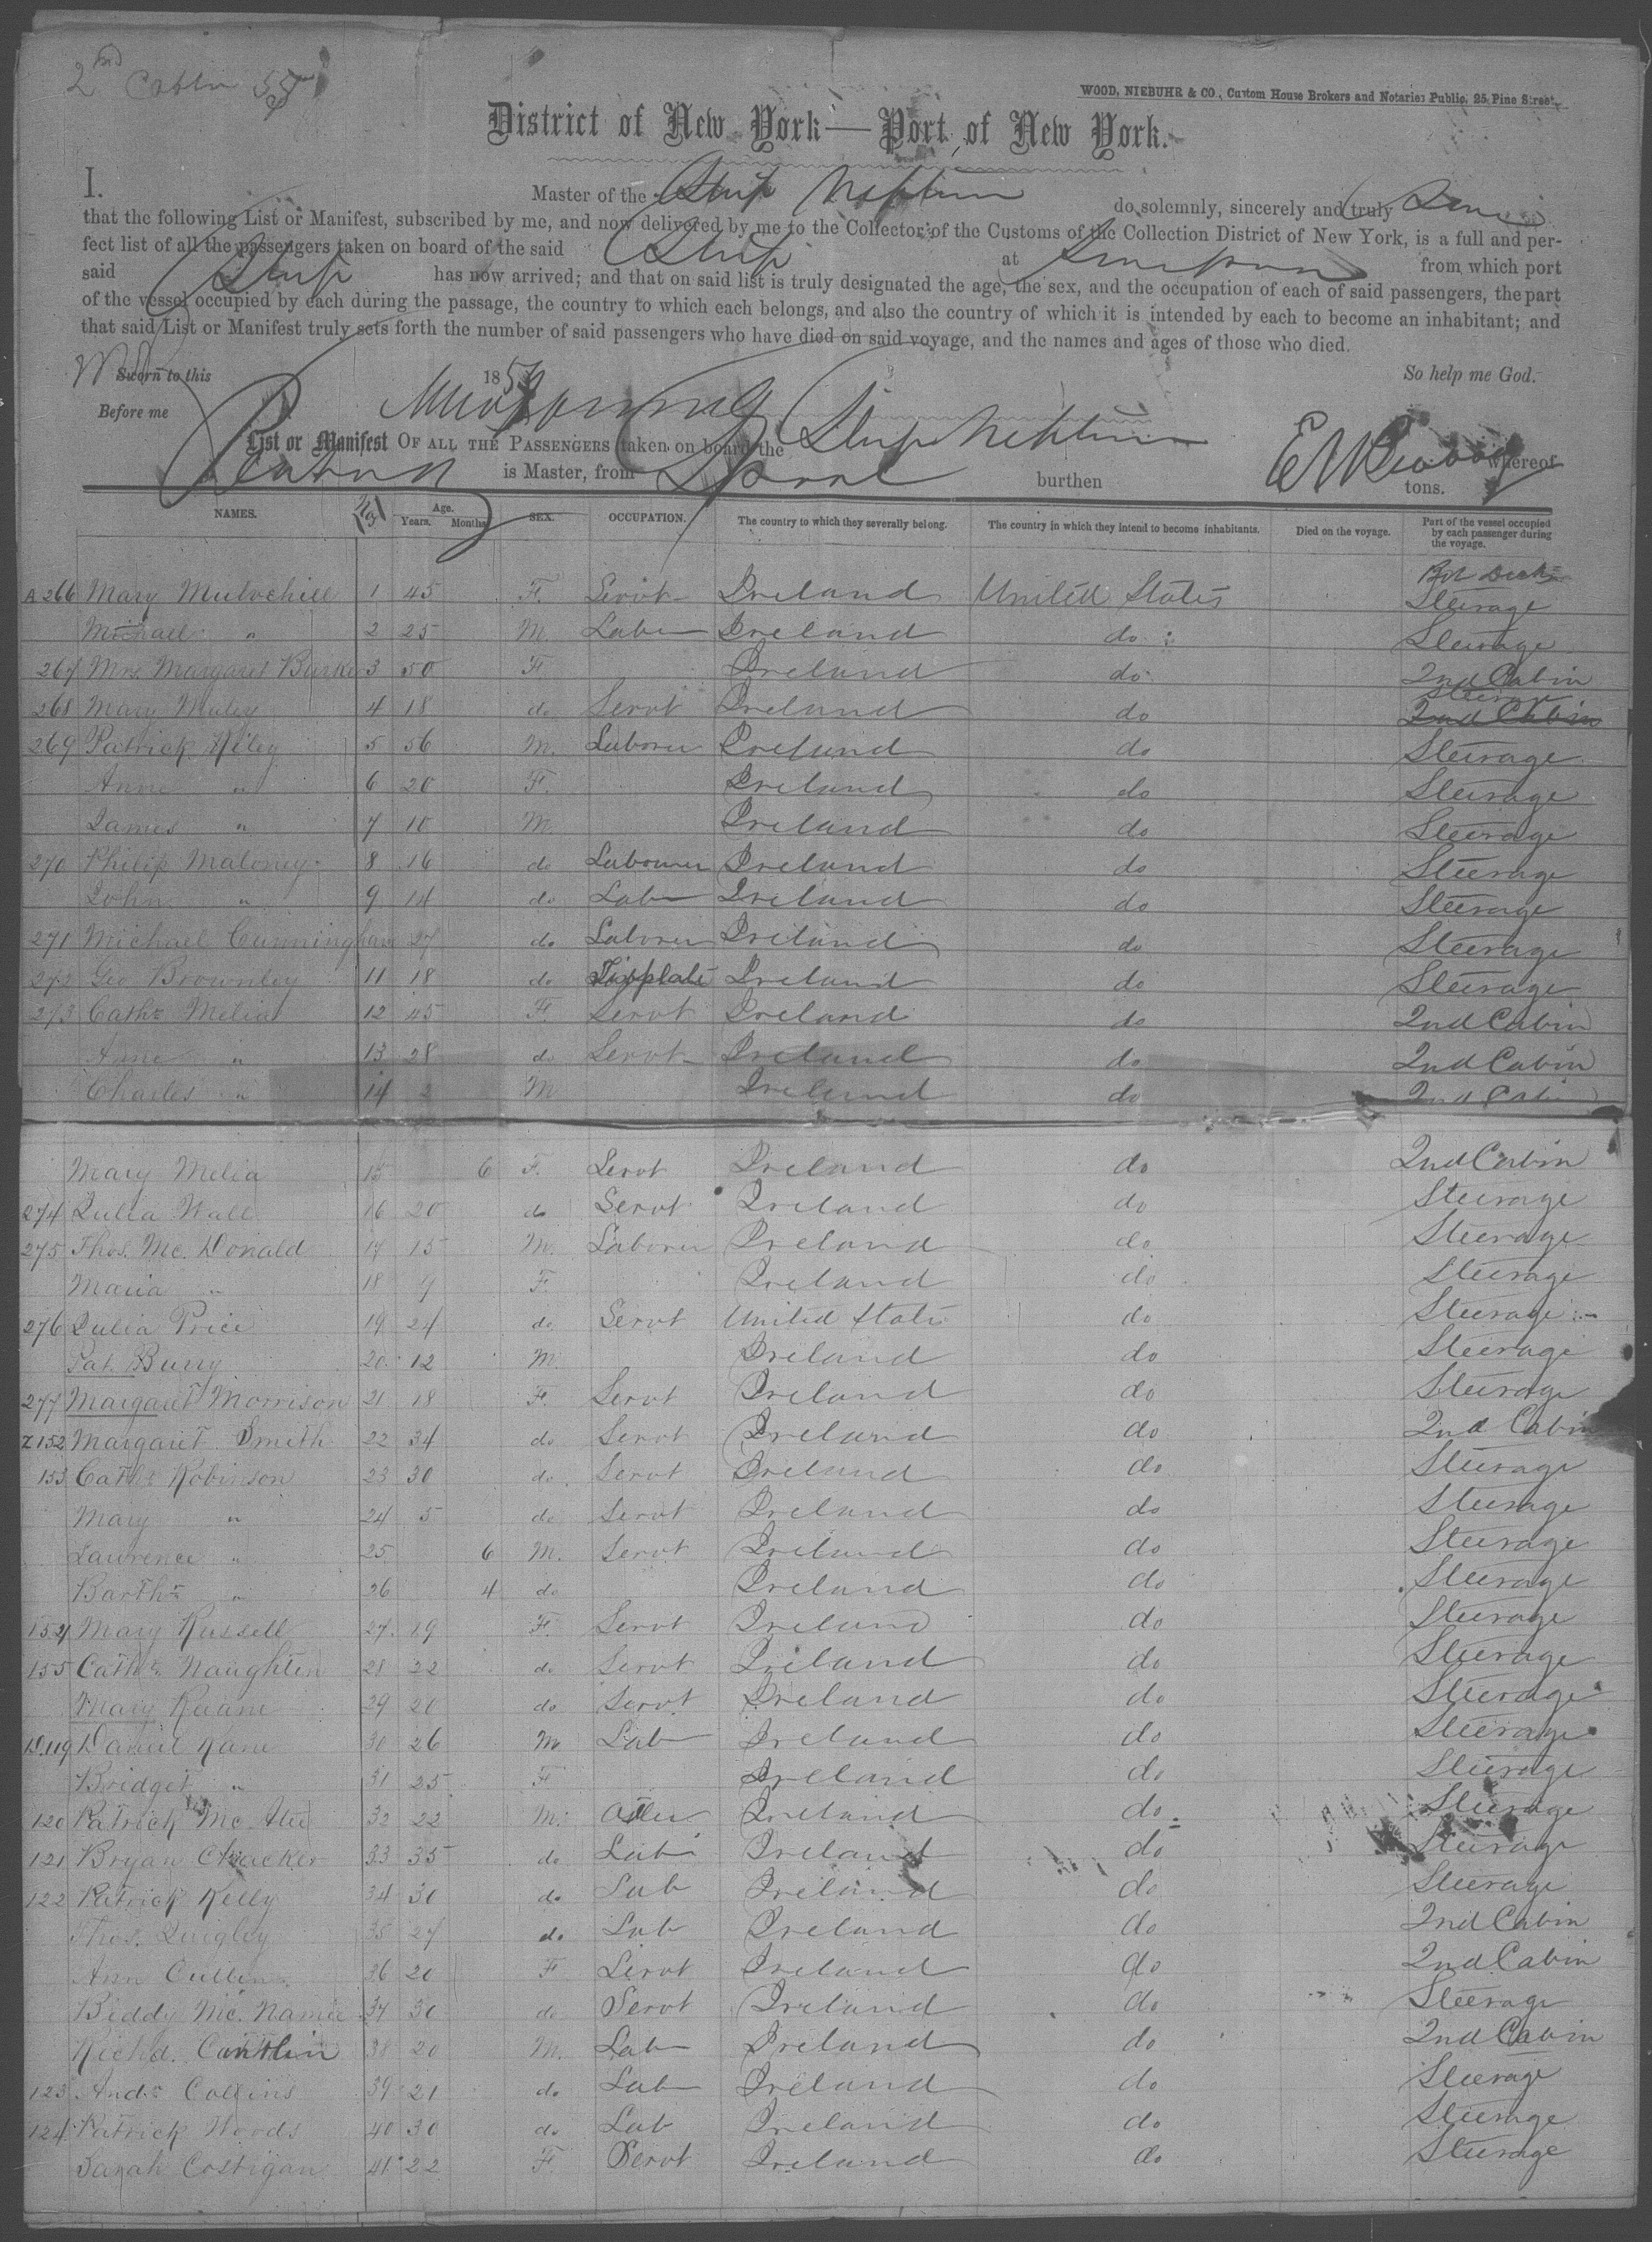 2nd Cabin 55
WOOD, NIEBUHR & CO., Custom House Brokers and Notaries Public, 25 Pine Street.
District of New York—Port of New York.
I. Master of the Ship Neptune do solemnly, sincerely and truly
that the following List or Manifest, subscribed by me, and now delivered by me to the Collector of the Customs of the Collection District of New York, is a full and per-
fect list of all the passengers taken on board of the said Ship at from which port
said Ship has now arrived; and that on said list is truly designated the age, the sex, and the occupation of each of said passengers, the part
of the vessel occupied by each during the passage, the country to which each belongs, and also the country of which it is intended by each to become an inhabitant; and
that said List or Manifest truly sets forth the number of said passengers who have died on said voyage, and the names and ages of those who died.
Sworn to this 185 So help me God.
Before me
List or Manifest OF ALL THE PASSENGERS taken on board the Ship Neptune whereof
Peabody is Master, from burthen tons.
NAMES. Age. Years. Months. SEX. OCCUPATION. The country to which they severally belong. The country in which they intend to become inhabitants. Died on the voyage. Part of the vessel occupied by each passenger during the voyage.
A 266 Mary Mulvehill 1 45 F. Servt Ireland United States Steerage
Michael " 2 25 M. Labr Ireland do Steerage
267 Mrs. Margaret Burke 3 50 F Ireland do 2nd Cabin
268 Mary Maley 4 18 do Servt Ireland do Steerage 2nd Cabin
269 Patrick Kiley 5 56 M. Laborer Ireland do Steerage
Anne " 6 20 F. Ireland do Steerage
James " 7 10 M. Ireland do Steerage
270 Philip Maloney 8 16 do Labourer Ireland do Steerage
John " 9 14 do Labr Ireland do Steerage
271 Michael Cunningham 27 do Laborer Ireland do Steerage
272 Geo Brownley 11 18 do Ireland do Steerage
273 Cathe Melia 12 45 F. Servt Ireland do 2nd Cabin
Anne " 13 28 do Servt Ireland do 2nd Cabin
Charles " 14 2 M Ireland do 2nd Cabin
Mary Melia 15 6 F. Servt Ireland do 2nd Cabin
274 Julia Wall 16 20 do Servt Ireland do Steerage
275 Thos. Mc. Donald 17 15 M. Laborer Ireland do Steerage
Maria " 18 9 F. Ireland do Steerage
276 Julia Price 19 24 do Servt United States do Steerage
Pat Burry 20 12 M. Ireland do Steerage
277 Margaret Morrison 21 18 F. Servt Ireland do Steerage
Z 152 Margaret Smith 22 34 do Servt Ireland do 2nd Cabin
153 Cathe Robinson 23 30 do Servt Ireland do Steerage
Mary " 24 5 do Servt Ireland do Steerage
Lawrence " 25 6 M. Servt Ireland do Steerage
Barthw " 26 4 do Ireland do Steerage
154 Mary Russell 27 19 F. Servt Ireland do Steerage
155 Cathe Naughten 28 22 do Servt Ireland do Steerage
Mary Ruane 29 20 do Servt Ireland do Steerage
D.119 Daniel Kane 30 26 M Lab Ireland do Steerage
Bridget " 31 25 F Ireland do Steerage
120 Patrick Mc. 32 22 M. Ireland do Steerage
121 Bryan 33 35 do Lab Ireland do Steerage
122 Patrick Kelly 34 30 do Lab Ireland do Steerage
Thos. Quigley 35 27 do Lab Ireland do 2nd Cabin
Ann Cullen 36 20 F Servt Ireland do 2nd Cabin
Biddy Mc. Namee 37 30 do Servt Ireland do Steerage
Richd. Cantlin 38 20 M. Lab Ireland do 2nd Cabin
123 Andw Collins 39 21 do Lab Ireland do Steerage
124 Patrick Woods 40 30 do Lab Ireland do Steerage
Sarah Costigan 41 22 F. Servt Ireland do Steerage